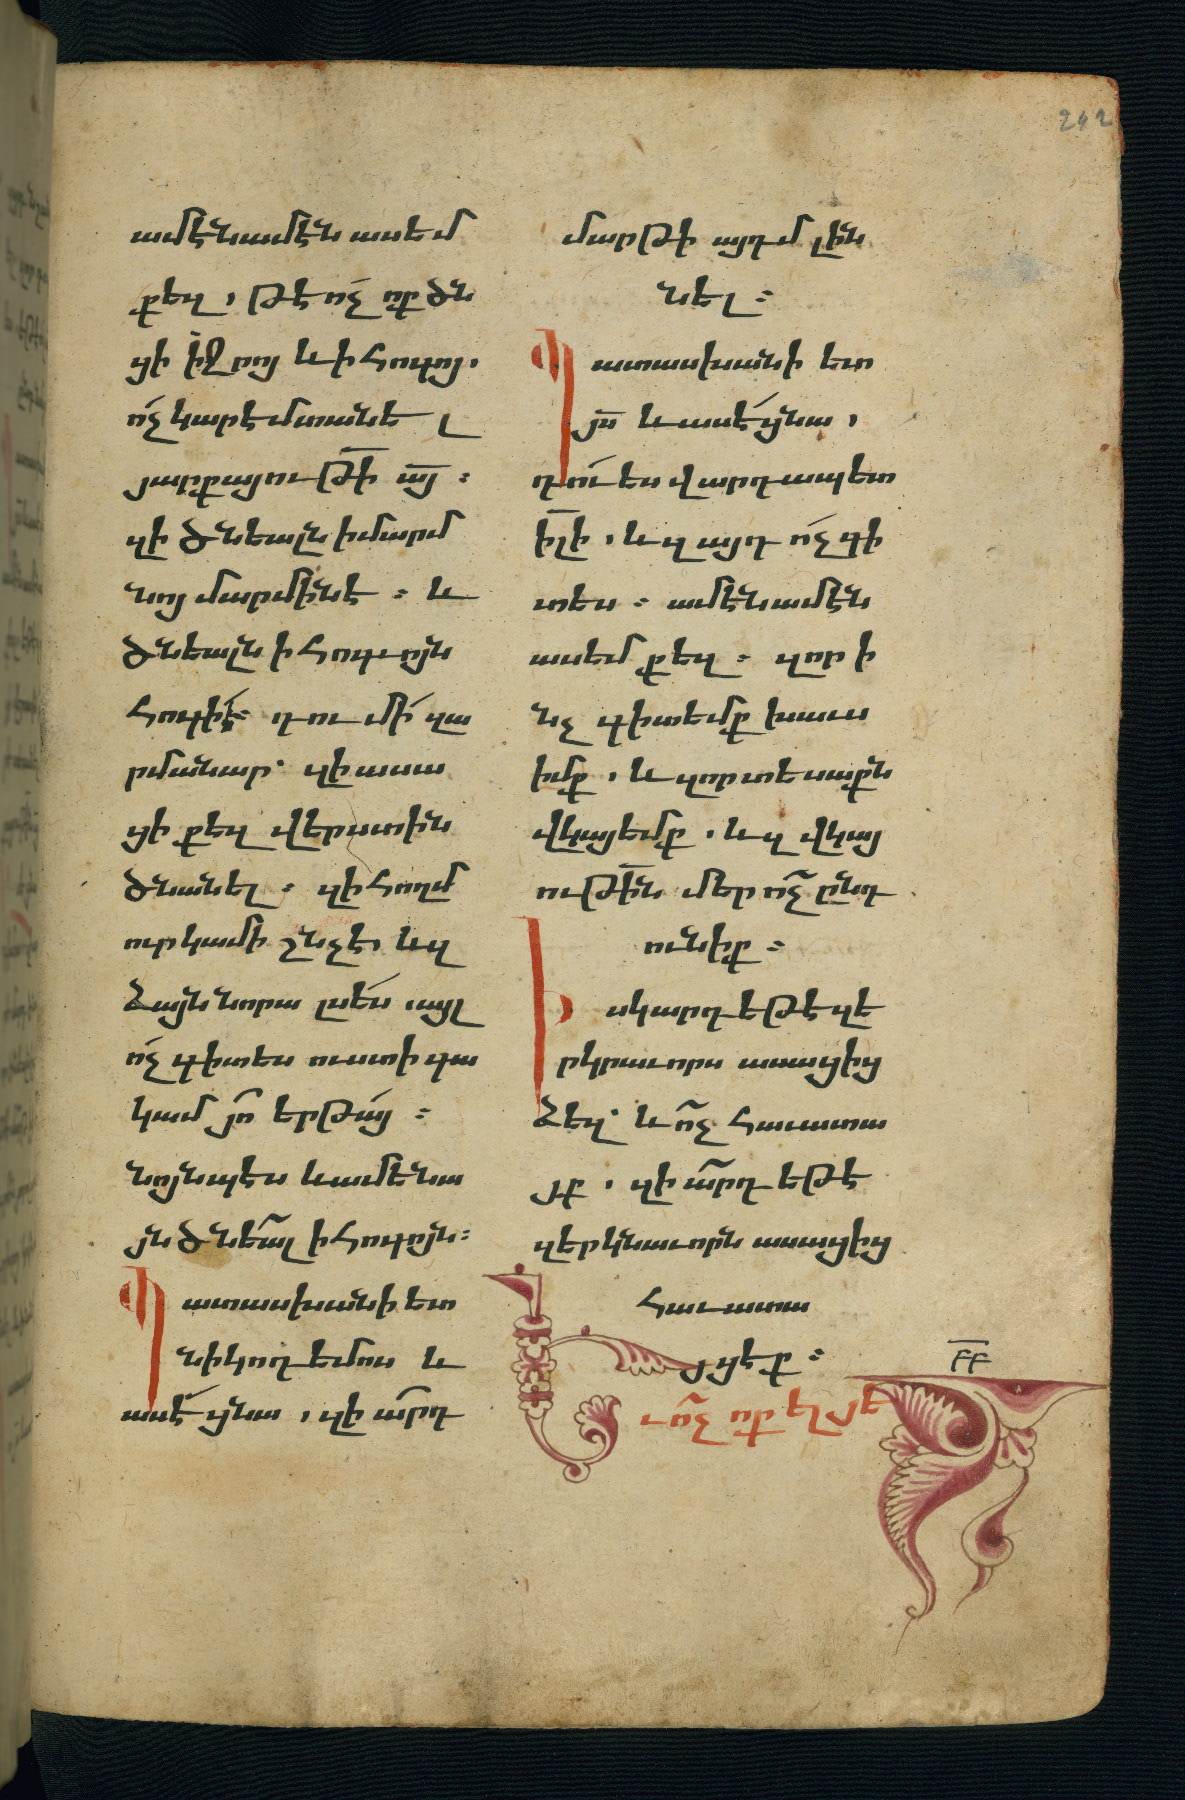 ամէն ամէն ասեմ
քեզ, թէ ոչ ոք ծն
ցի ի ջրոյ և ի հոգոյ,
ոչ կարէ մտանե լ
յարքայութի այ ։
զի ծնեալն ի մարմ
նոյ մարմին է ։ և
ծնեալն ի հոգւոյն
հոգի է ։ դու մի զա
րմանար՝ զի ասա
ցի քեզ վերստին
ծնանել ։ զի հողմ
ուր կամի շնչէ, և զ
ձայն նորա լսես այլ
ոչ գիտես ուստի գա
կամ յո երթայ ։
նոյնպէս և ամենա
յն ծնեալ ի հոգոյն ։
Պատասխանի ետ
նիկոդեմոս և
ասէ ցնա, զի արդ
մարթի այդմ լին
նել ։
Պատասխանի ետ
յս և ասէ ցնա,
դու ես վարդապետ
իլի, և զայդ ոչ գի
տես ։ ամէն ամէն
ասեմ քեզ ։ զոր ի
նչ գիտեմք խաւս
իմք, և զոր տեսաքն
վկայեմք, և զվկայ
ութին մեր ոչ ընդ
ունիք ։
Իսկ արդ եթե զե
րկրաւորս ասացից
ձեզ՝ և ոչ հաւատա
յք, զի արդ եթէ
զերկնաւորն ասացից
հաւատա
յցեք ։
Եւ ոչ ոք ել յե
ԻԻ
242